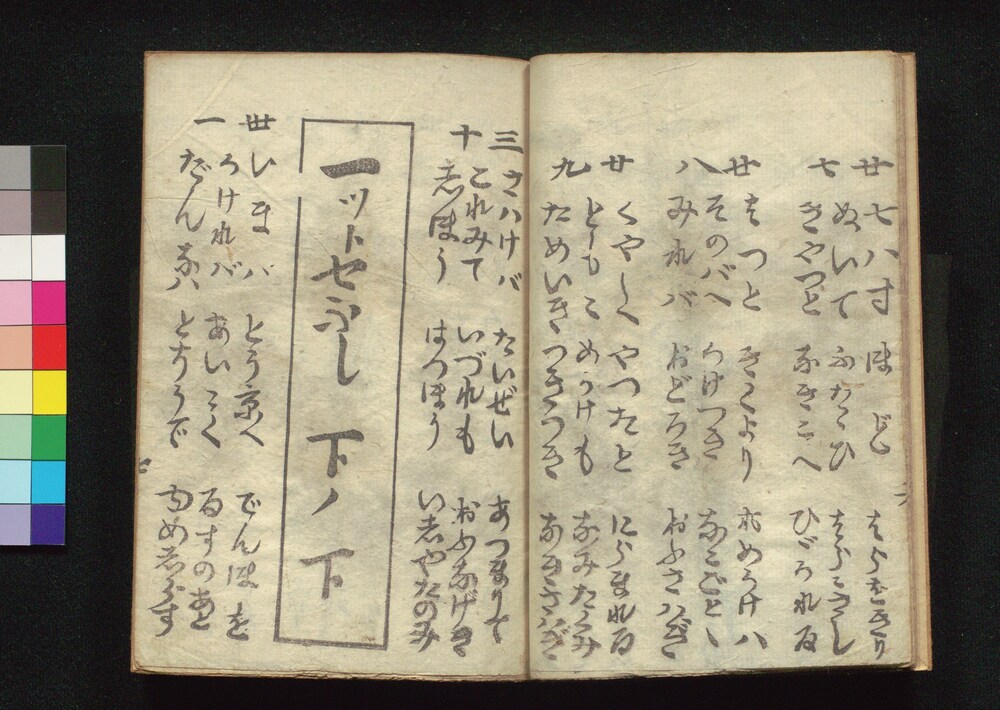 廿 七八寸 ほどじ はらをきり
七 ぬいて ふたゝび さらこさし
きやつと なきこへ ひびられる
廿 さつと きくより おめかけハ
八 そのバへ かけつき なにごとゝ
みれバ おどろき おふさハぎ
廿 くやしく やつたと にらまれる
九 ともこ めかけも なみだぐみ
ためいき つきつき なきさハぎ
三 さハけバ たいぜい あつまりて
十 これみて いづれも おふなげき
志ほう はつほう い志やたのみ
一ツトセぶし 下ノ下
卅 いまハ とう京へ でんぽを
一 かけれバ あいにく るすのあと
だんなハ とちうで ゆめ志らず